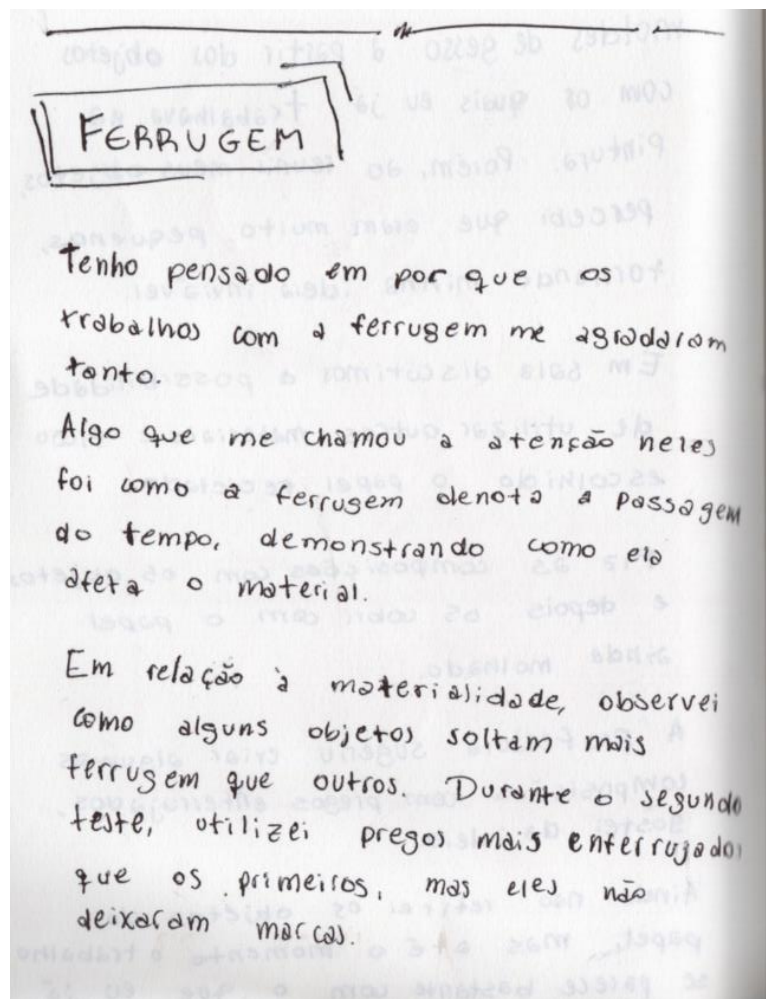 FERRUGEM
Tenho pensado em por que os
trabalhos com a ferrugem me agradaram
tanto.
Algo que me chamou a atenção neles
foi como a ferrugem denota a passagem
do tempo, demonstrando como ela
afeta o material.
Em relação à materialidade, observei
como alguns objetos soltam mais
ferrugem que outros. Durante o segundo
teste, utilizei pregos mais enferrujados
que os primeiros, mas eles não
deixaram marcas.